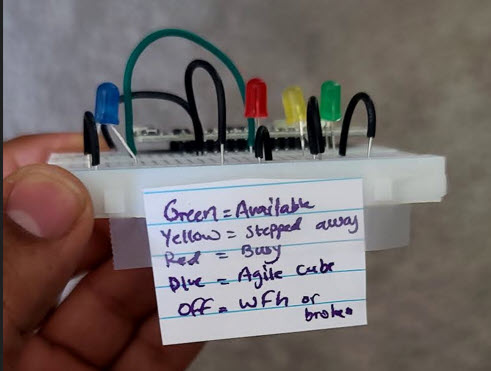 Green = Available
Yellow = Stepped away
Red = Busy
Blue = Agile cube
Off = WFh or
broken